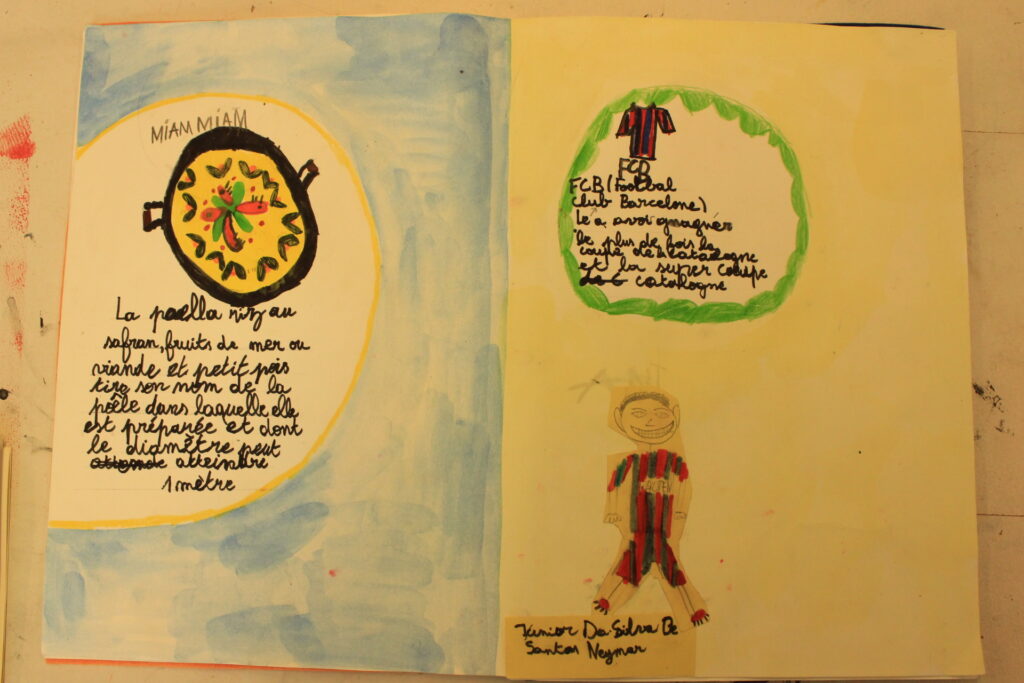 MIAM MIAM
La paella riz au
safran, fruits de mer ou
viande et petit pois
tire son nom de la
poêle dans laquelle elle
est préparée et dont
le diamètre peut
atteindre
1 mètre
FCB
FCB (Footbal
Club Barcelone)
le a avoi gnagnér
le plus de fois la
coupe de la catalogne
et la super coupe
catalogne
Junior Da Silva De
Santos Neymar